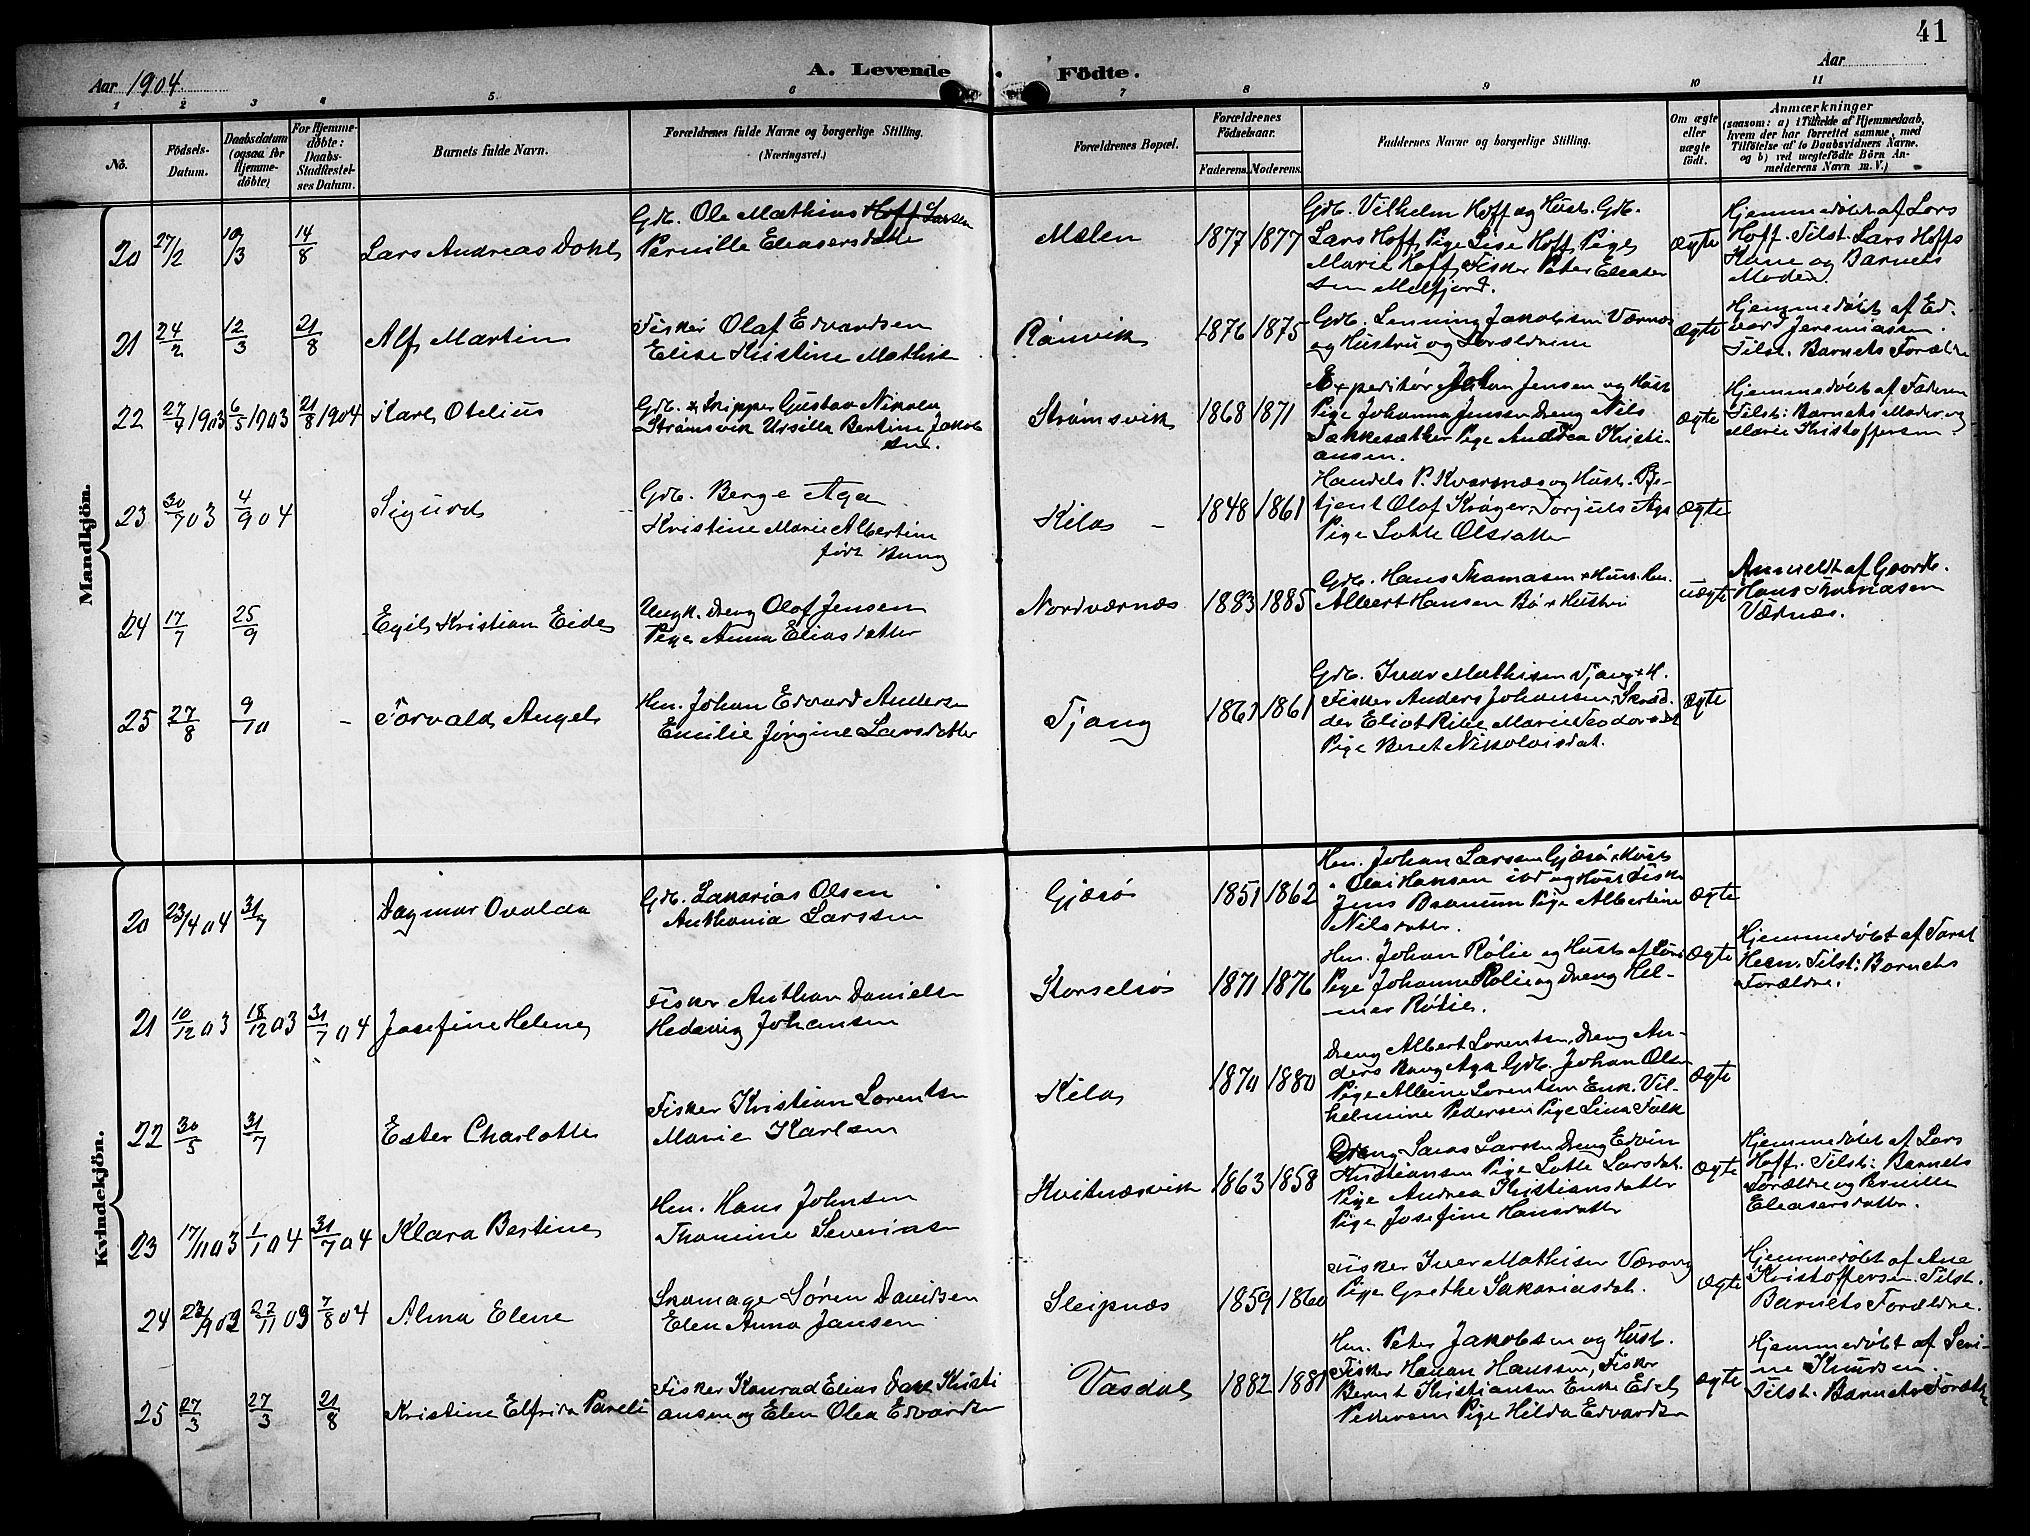 41
Aar 1904.
A. Levende Födte.
Aar
1 2 3 4 5 6 7 8 9 10 11
No.
Födsels-Datum.
Daabsdatum (ogsaa for Hjemme-döbte)
For Hjemme-döbte: Daabs-Stadfæstel-ses Datum.
Barnets fulde Navn.
Forældrenes fulde Navne og borgerlige Stilling.
(Næringsvei.)
Forældrenes Bopæl.
Forældrenes Födselsaar.
Faderens. Moderens.
Faddernes Navne og borgerlige Stilling.
Om ægte eller uægte födt.
Anmærkninger
(saasom: a) i Tilfælde af Hjemmedaab,
hvem der har forrettet samme, med
Tilföielse af to Daabsvidners Navne.
og b) ved uægtefödte Börn An-
melderens Navn m.V.)
Mandkjön.
20 27/2 10/3 14/8 Lars Andreas Dohl
Gdb. Ole Mathius Hoff Larsen
Pernille Eleasersdatter
Mælen 1877 1877
Gdb. Vilhelm Hoff og Hust. Gdb.
Lars Hoff, Pige Lise Hoff, Pige
Marie Hoff, Fisker Peter Eleaser
sen Melfjord.
ægte
Hjemmedøbt af Lars
Hoff. Tilst. Lars Hoffs
Kone og Barnets
Moder.
21 24/2 12/3 21/8 Alf Martin
Fisker Olaf Edvardsen
Elise Kristine Mathis
Rønvik 1876 1875
Gdb. Lenning Jakobsen Værnes
og Hustru og Forældrene
ægte
Hjemmedøbt af Ed-
vard Jeremiassen.
Tilst. Barnets Forældre
22 27/4 1903 6/5 1903 21/8 1904 Karl Otelius
Gdb. & Skipper Gustav Nikolai
Strømsvik Ursilla Bertine Jakob
sen.
Strømsvik 1868 1871
Expeditør Johan Jensen og Hust
Pige Johanna Jensen Dreng Nils
Pige Andrea Kristi-
ansen.
ægte
Hjemmedøbt af Faderen
Tilst: Barnets Moder og
Marie Kristoffersen.
23 30/7 03 4/9 04 Sigurd
Gdb. Berge Aga
Kristine Marie Albertine
født Bang
Kila - 1848 1861
Handels P. Kvarsnæs og Hust.
tjent Olaf Krøger, Torjuls Aga
Pige Lotte Olsdatter
ægte
24 17/7 25/9 Egil Kristian Eide
Ungk. Dreng Olaf Jensen
Pige Anna Eliasdatter
Nordværnæs 1883 1885
Gdb. Hans Thomasen + Hust. Hm.
Albert Hansen Bø + Hustru
uægte
Anmeldt af Gaardb.
Hans Thomasen
Værnæs.
25 27/8 9/10 - Torvald Angel
Hm. Johan Edvard Anders
Emilie Jørgine Larsdatter
Tjong 1861 1861
Gdb. Ivar Mathisen Tjong + H.
Fisker Anders Johansen, Skræd-
der Eliot Marie Teodorsdt
Pige Beret Nikolaisdat.
ægte
Kvindekjön.
20 23/4 04 31/7 Dagmar Ovalda
Gdb. Zakarias Olsen
Anthonia Larssen
Gjæsø 1851 1862
Hm. Johan Larssen Gjæsø + Hust
Olai Hansen ibd og Hust Fisk
Jens Pige Albertine
Nilsdatter.
ægte
21 10/12 03 18/12 03 31/7 04 Josefine Helene
Fisker Anthon Daniels
Hedevig Johansen
Storselsøs 1871 1876
Hm. Johan Rølie og Hust af
Pige Johanne Rølie og Dreng Hel-
mer Røtie.
ægte
Hjemmedøbt af Faret
Heen. Tilst: Barnets
Forældre.
22 30/5 31/7 Ester Charlotte
Fisker Kristian Lorents
Marie Karlsen
Kila 1870 1880
Dreng Albert Lorentsen, Dreng An-
ders Bang Aga Gdb. Johan Olsen
Pige Alleine Lorentsen Enk. Vil-
helmine Pedersen Pige Lina Falk
ægte
23 17/11 03 1/1 04 31/7 04 Klara Bertine
Hm. Hans Johnsen
Thomine Severins
Kvitnæsvik 1863 1858
Dreng Larsen Dreng Edvin
Kristiansen Pige Lotte Larsdat.
Pige Andrea Kristiansdatter
Pige Josefine Hansdatter
ægte
Hjemmedøbt af Lars
Hoff. Tilst: Barnets
Forældre og Pernille
Eleasersdatter.
24 23/9 03 22/11 03 7/8 04 Alma Elene
Skomager Søren Davidsen
Elen Anna Jansen
Sleipnæs 1859 1860
Fisker Iver Mathisen
Pige Grethe Sakariasdat.
ægte
Hjemmedøbt af Ane
Kristoffersen. Tilst.
Barnets Forældre.
25 27/3 27/3 21/8 Kristine Elfrida Pareli
Fisker Konrad Elias Dok Kristi
ansen og Elen Olea Edvards
Vasdal 1882 1881
Hm. Peter Jakobsen og Hust.
Fisker Hanssen, Fisker
Bernt Kristiansen Enke Edel
Pedersen Pige Hilda Edvards
ægte
Hjemmedøbt af Seri-
ne Knudsen.
Tilst. Barnets Forældre